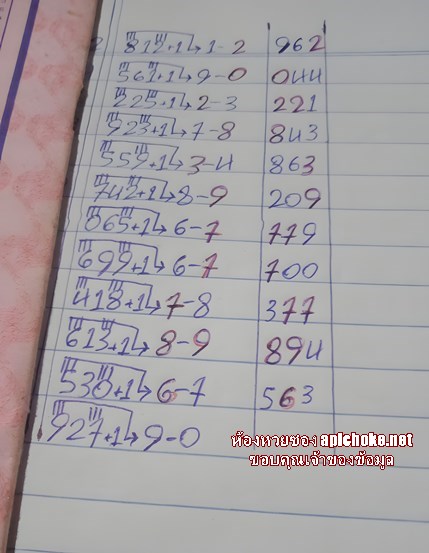 812+1→1-2 962
561+1→9-0 044
225+1→2-3 221
923+1→7-8 843
559+1→3-4 863
742+1→8-9 209
065+1→6-7 779
699+1→6-7 700
418+1→7-8 377
613+1→8-9 894
530+1→6-7 563
927+1→9-0
ห้องหวยซอง apichoke.net
ขอบคุณเจ้าของข้อมูล